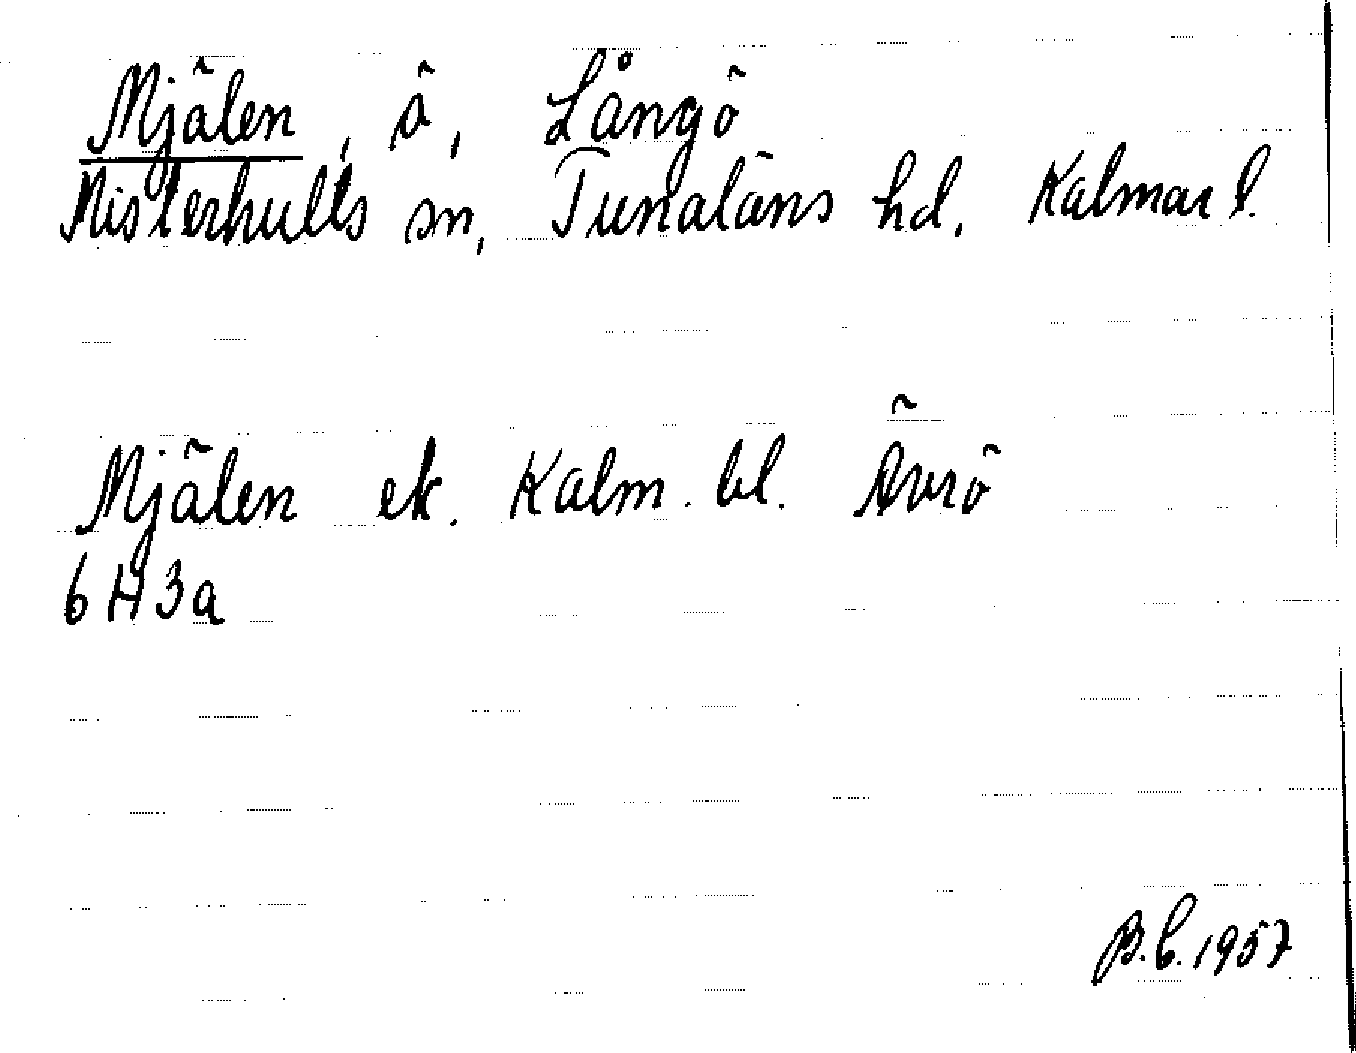 Mjälen, ö, Långö
Misterhults sn, Tunaläns hd, Kalmar l.
Mjälen ek. Kalm. bl. Ävrö
6H3a
B.C. 1957